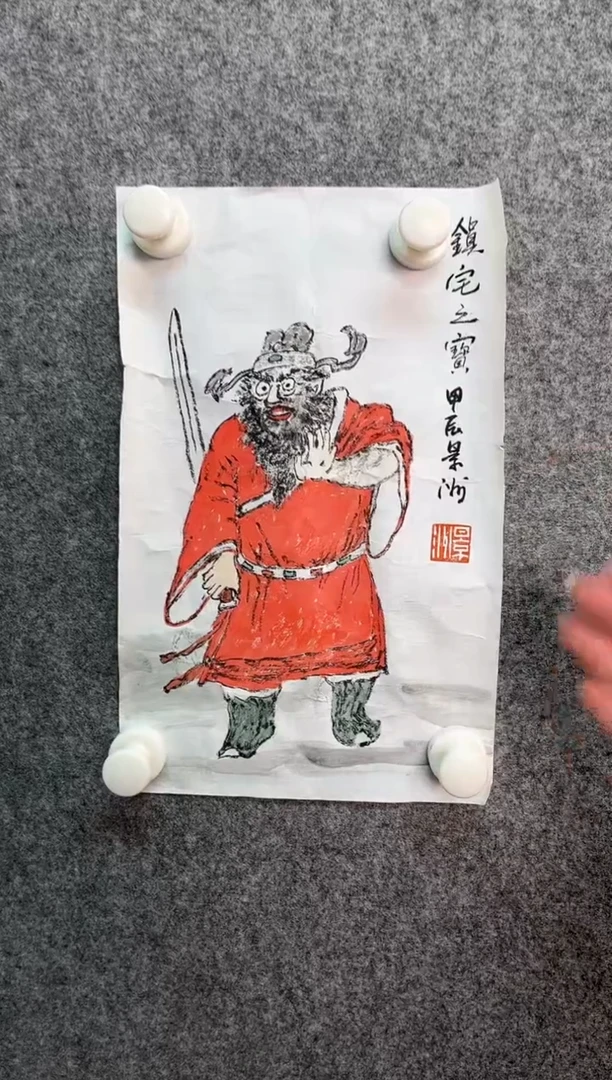 鎮宅之寶
甲辰景洲
景洲